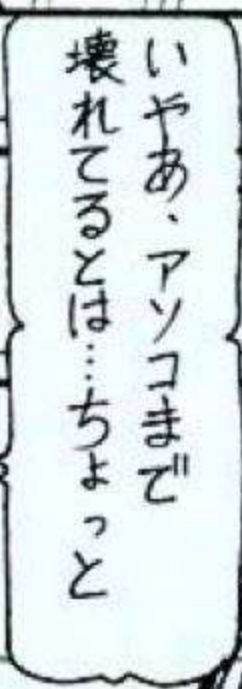 いやあ、アソコまで
壊れてるとは…ちょっと